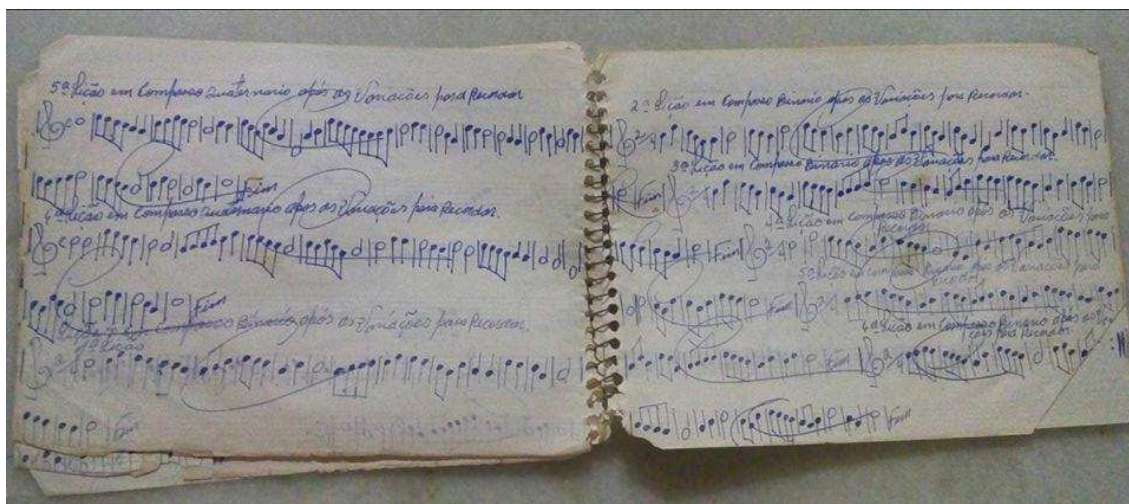 5ª Lição em Compasso Quaternario após as Variações para Recordar
Fim
Lição em Compasso Quaternario após as Variações para Recordar.
Fim
Lição em Compasso Binario, após as Variações para Recordar.
1ª Lição
Fim
2ª Lição em Compasso Binario após as Variações para Recordar.
3ª Lição em Compasso Binario após as Variações para Recordar
Fim
4ª Lição em compasso Binario após as Variações para
Recordar
Fim
5ª Lição em compasso Binario após as Variações para
Recordar
Fim
Lição em Compasso Binario após as
para Recordar
Fim
Fim